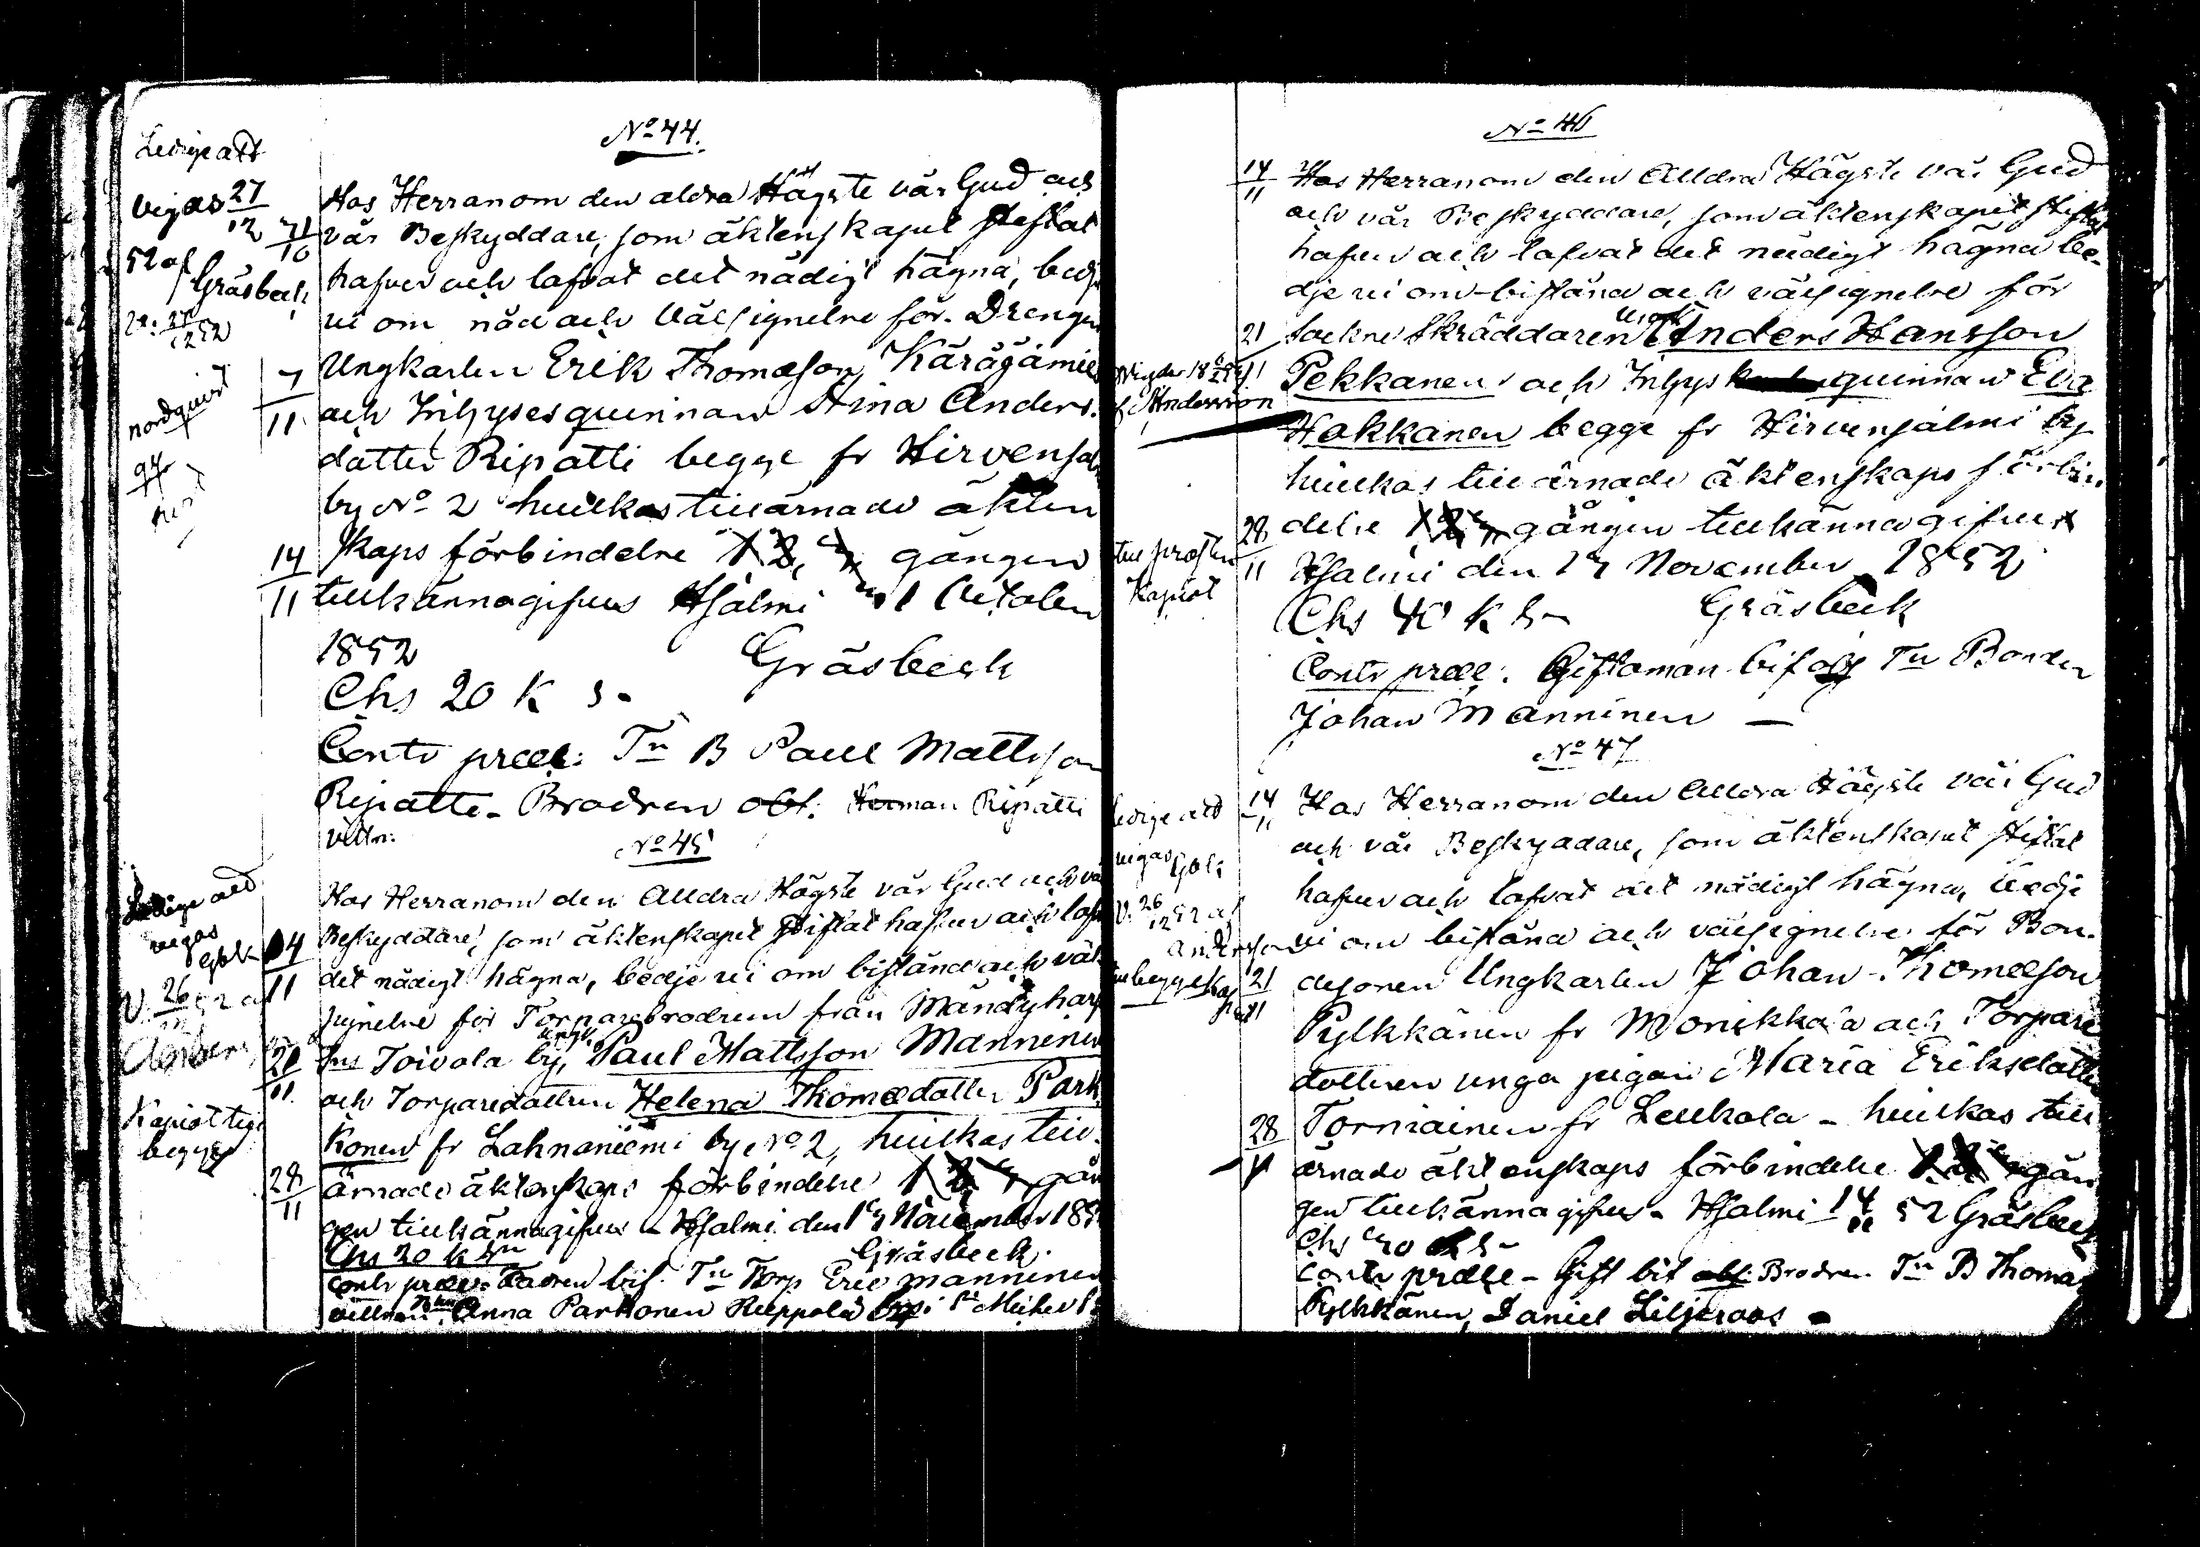 No 44.
Ledige att
vigas 27/12
52 af
Gräsbeck
31/10
7/11
nordqvist
14/11
Hos Herranom den aldra Högste vår Gud och
vår Beskyddare, som äktenskapet stiftat
hafver och lofvat det nådigt hägna, bedje
vi om nåd och Välsignelse för Drengen
Ungkarlen Erik Thomasson Kärägämie
och Inhysesqvinnan Stina Anders-
dotter Ripatti begge fr Hirvensal
by No 2 hvilkas tillärnade äkten
skaps förbindelse 1 2, 3 gången
tillkännagifves Hsalmi 31 October
1852
Gräsbeck
Chs 20 K s-
Contr præs: Tn B Paul Mattsson
Ripatti- Brodren obt: Herman Ripatti
vittn:
No 45
Ledige att
vigas
V. 26 52 af
Kapiot
begge
14/11
21/11
28/11
Hos Herranom den Alldra Högste vår Gud och vår
Beskyddare, som äktenskapet stiftat hafver och lofv
det nådigt hägna, bedje vi om bistånd och väl-
signelse för Torparebrodren från Mändyharj
Toivola by, Paul Mattsson Manninen
och Torparedottren Helena Thomædotter Park
konen fr Lahnaniemi by No 2, hvilkas till-
ärnade äktenskaps förbindelse 1 2 3 gån
gen tillkännagifves - Hsalmi den 13 November 185
Chs 20 k sr
Gräsbeck.
Contr præs: Fadren bif. Tn Torp Eric Manninen
Anna Parkonen Reppola
No 46
14/11
21/11
28/11
Andersson
Kapiot
Hos Herranom den Alldra Högste vår Gud
och vår Beskyddare, som äktenskapet stiftat
hafver och lofvat det nådigt hägna be-
dje vi om bistånd och välsignelse för
Sockne Skräddaren Anders Hansson
Pekkanen och Inhysqvinnan Eva
Hokkanen begge fr Hirvensalmi by
hvilkas tillärnade äktenskaps förbin
delse 1 2 3 gången tillkännagifves
Hsalmi den 13 November 1852
Chs 40 k s-
Gräsbeck
Contr præs: Giftoman bifall Tn Bonden
Johan Manninen -
No 47
ledige att
vigas
V. 26/12 52 af
Andersson
14/11
21/11
28/11
Hos Herranom den Alldra Högste vår Gud
och vår Beskyddare, som äktenskapet stiftat
hafver och lofvat det nådigt hägna, bedje
vi om bistånd och välsignelse för Bon-
desonen Ungkarlen Johan Thomæson
Pylkkänen fr Monikkala och Torpare
dottren unga pigan Maria Eriksdotter
Torniainen fr Leukola - hvilkas till
ärnade äktenskaps förbindelse 1 2 3 gån
gen tillkännagifves - Hsalmi 14/11 52 Gräsbeck
Contr præse - Gift bif Brodren Tn B Thomas
Pylkkänen, Daniel Liljeroos -